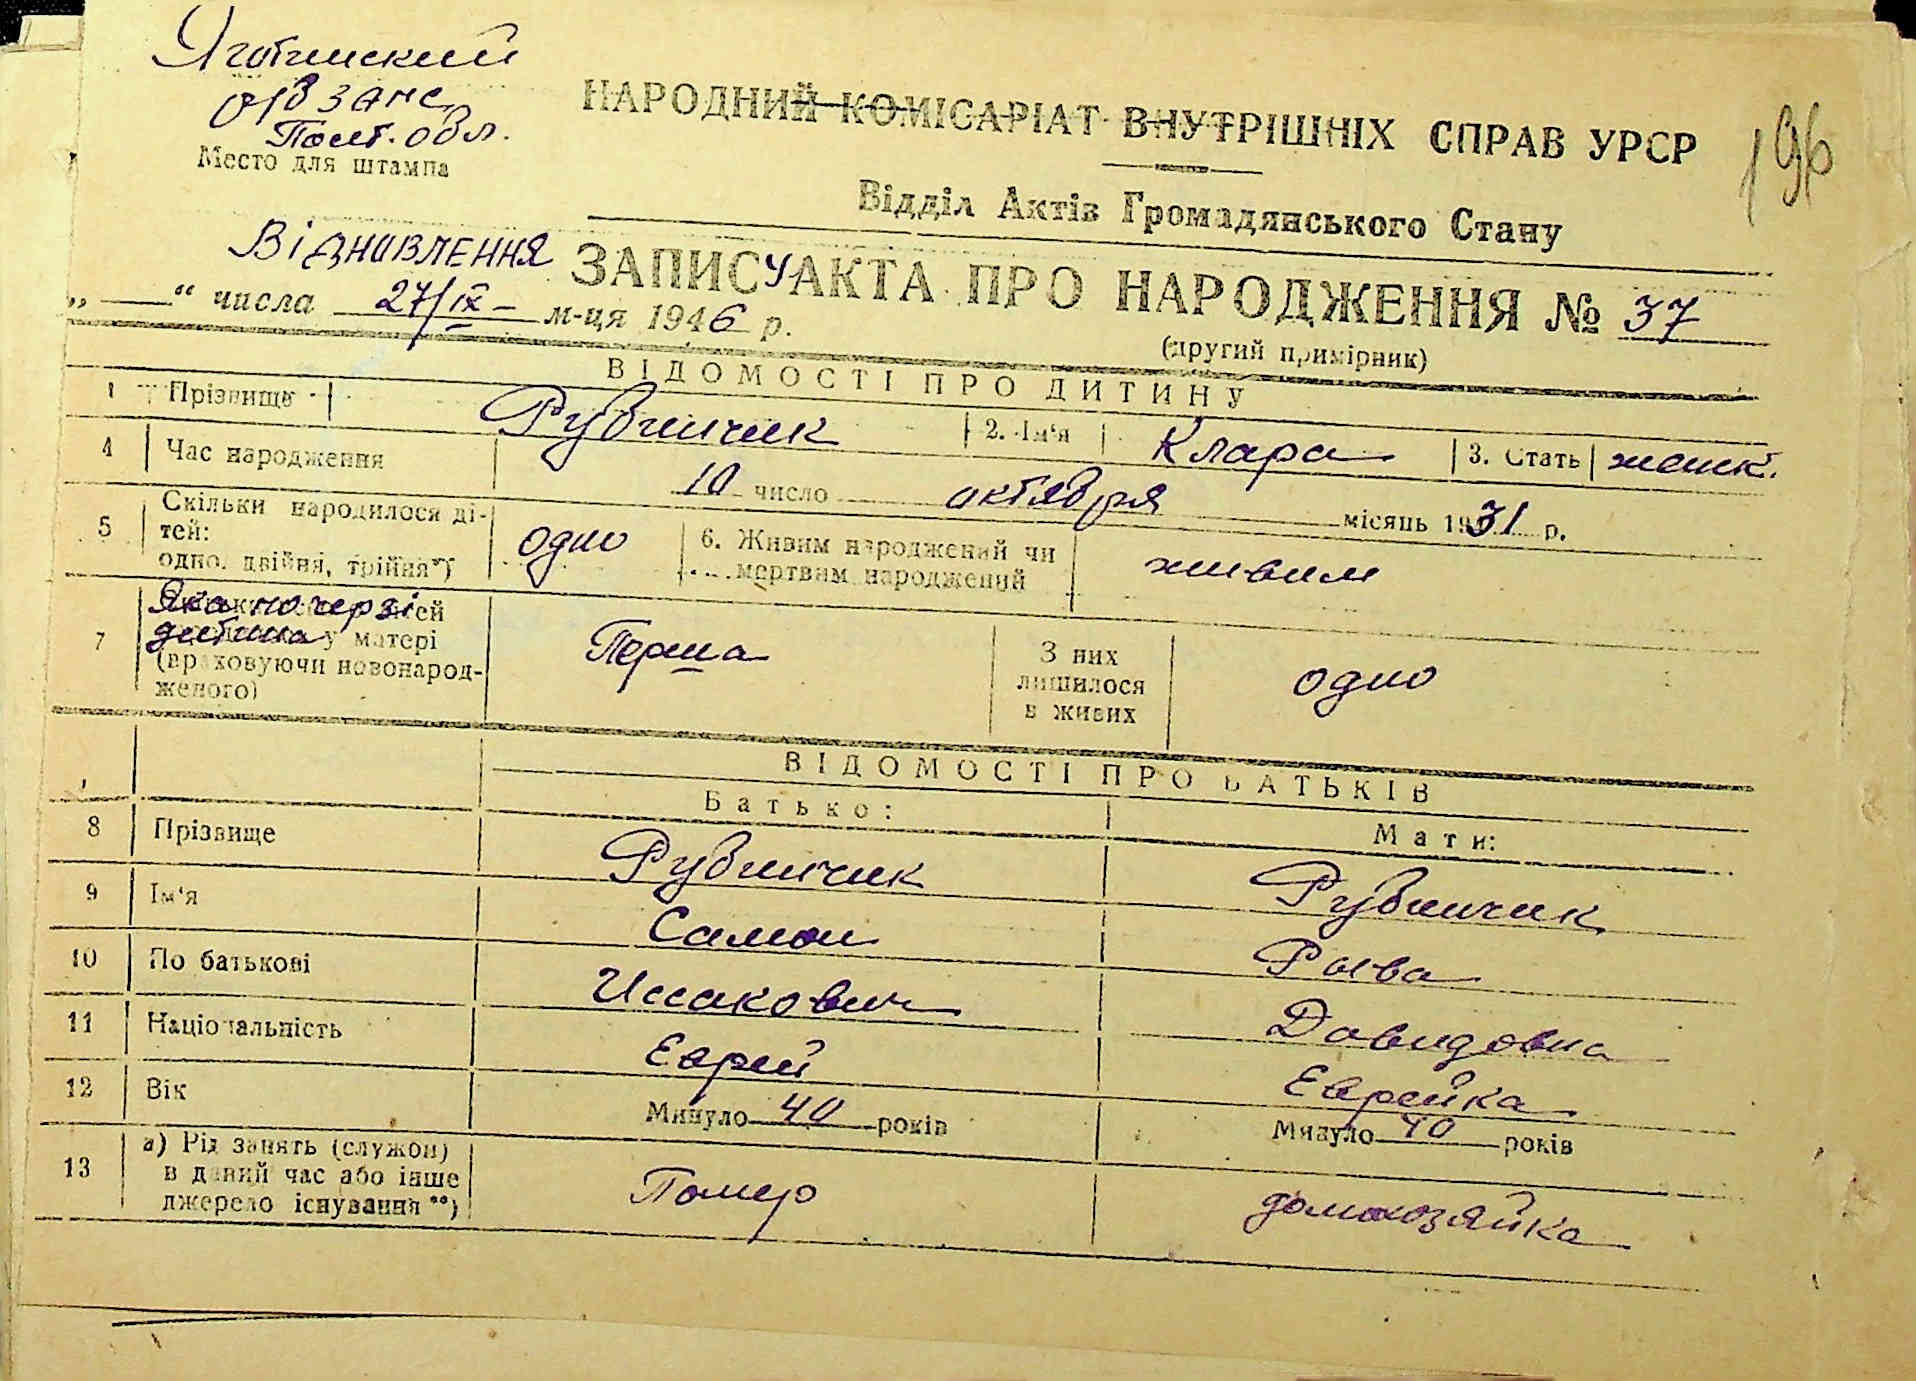 Яготинский
р/в ЗАГС
Полт. обл.
Место для штампа
НАРОДНИЙ КОМІСАРІАТ ВНУТРІШНІХ СПРАВ УРСР
196
Відділ Актів Громадянського Стану
Відновлення ЗАПИСУ АКТА ПРО НАРОДЖЕННЯ № 37
„ — “ числа 27/IX – м-ця 1946 р.
(другий примірник)
ВІДОМОСТІ ПРО ДИТИНУ
1 Прізвище Рубинчик 2. Ім'я Клара 3. Стать женск.
4 Час народження 10 число октября місяць 1931 р.
5 Скільки народилося ді-
тей:
одно, двійня, трійня*)
одно
6. Живим народжений чи
мертвим народжений
живим
7 Яка по черзі
дитина у матері
(враховуючи новонарод-
женого)
Перша
З них
лишилося
в живих
одно
ВІДОМОСТІ ПРО БАТЬКІВ
Батько: Мати:
8 Прізвище Рубинчик Рубинчик
9 Ім'я Самон Роева
10 По батькові Исакович Давидовна
11 Національність Еврей Еврейка
12 Вік Минуло 40 років Минуло 40 років
13 а) Рід занять (служби)
в даний час або інше
джерело існування **)
Помер домохозяйка